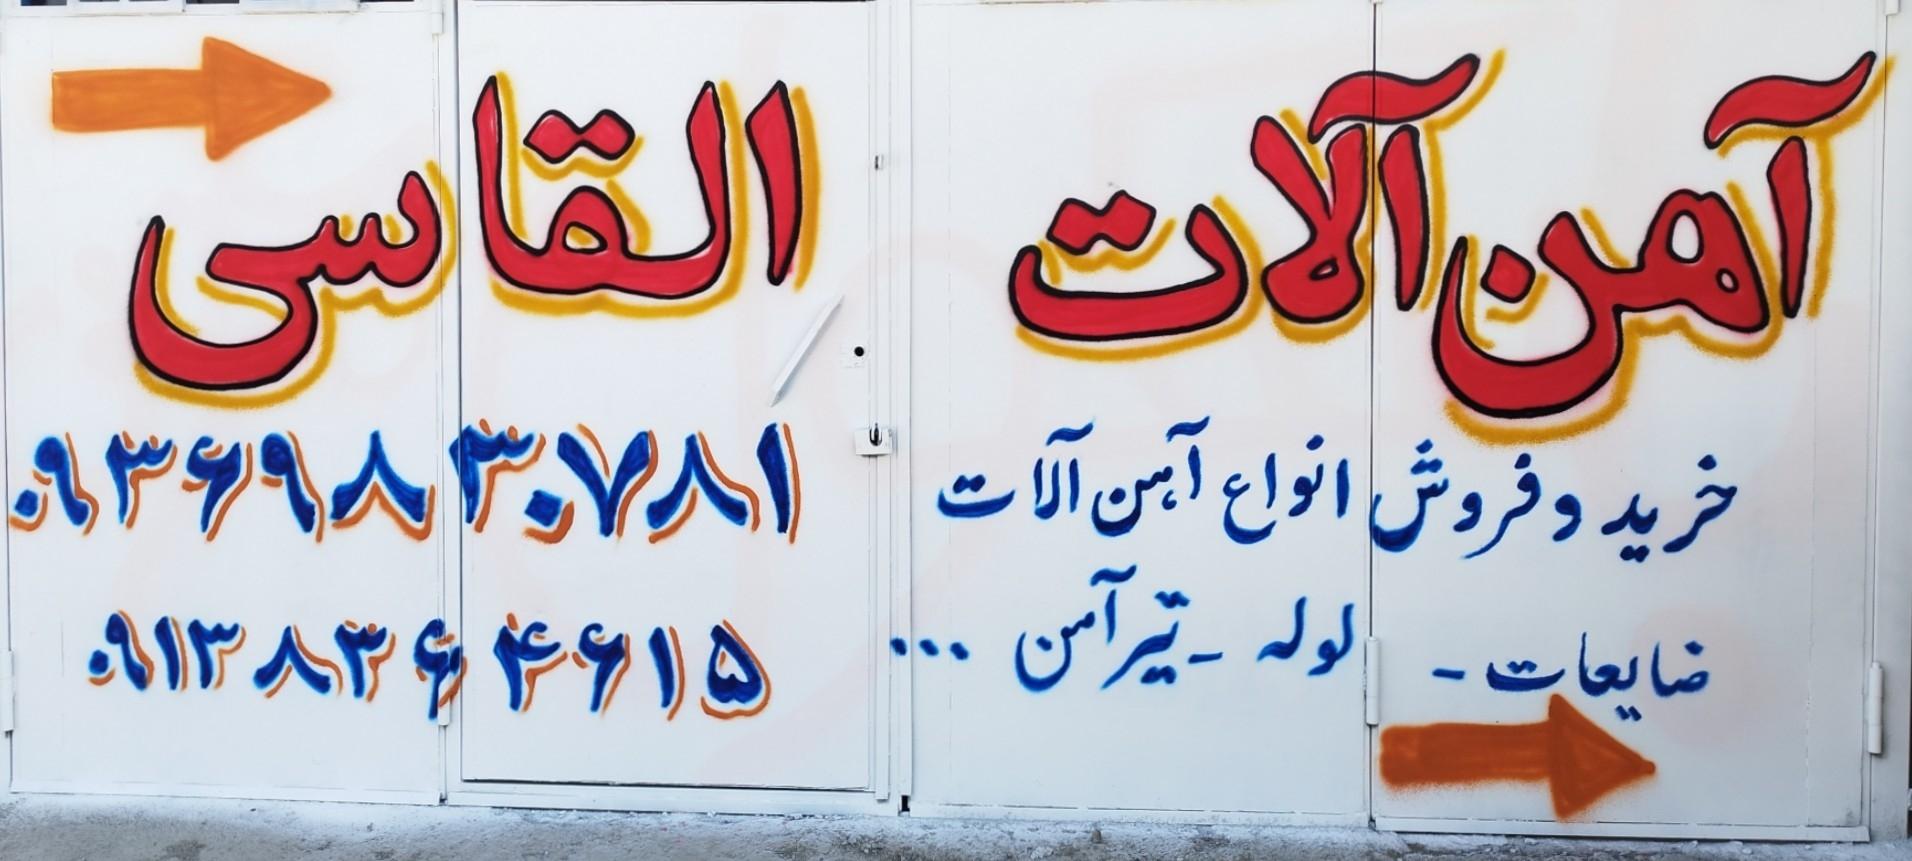 آهن آلات القاسی
خرید و فروش انواع آهن آلات
ضایعات - لوله - تیرآهن ...
۰۹۳۶۹۸۳۰۷۸۱
۰۹۱۳۸۳۶۴۶۱۵